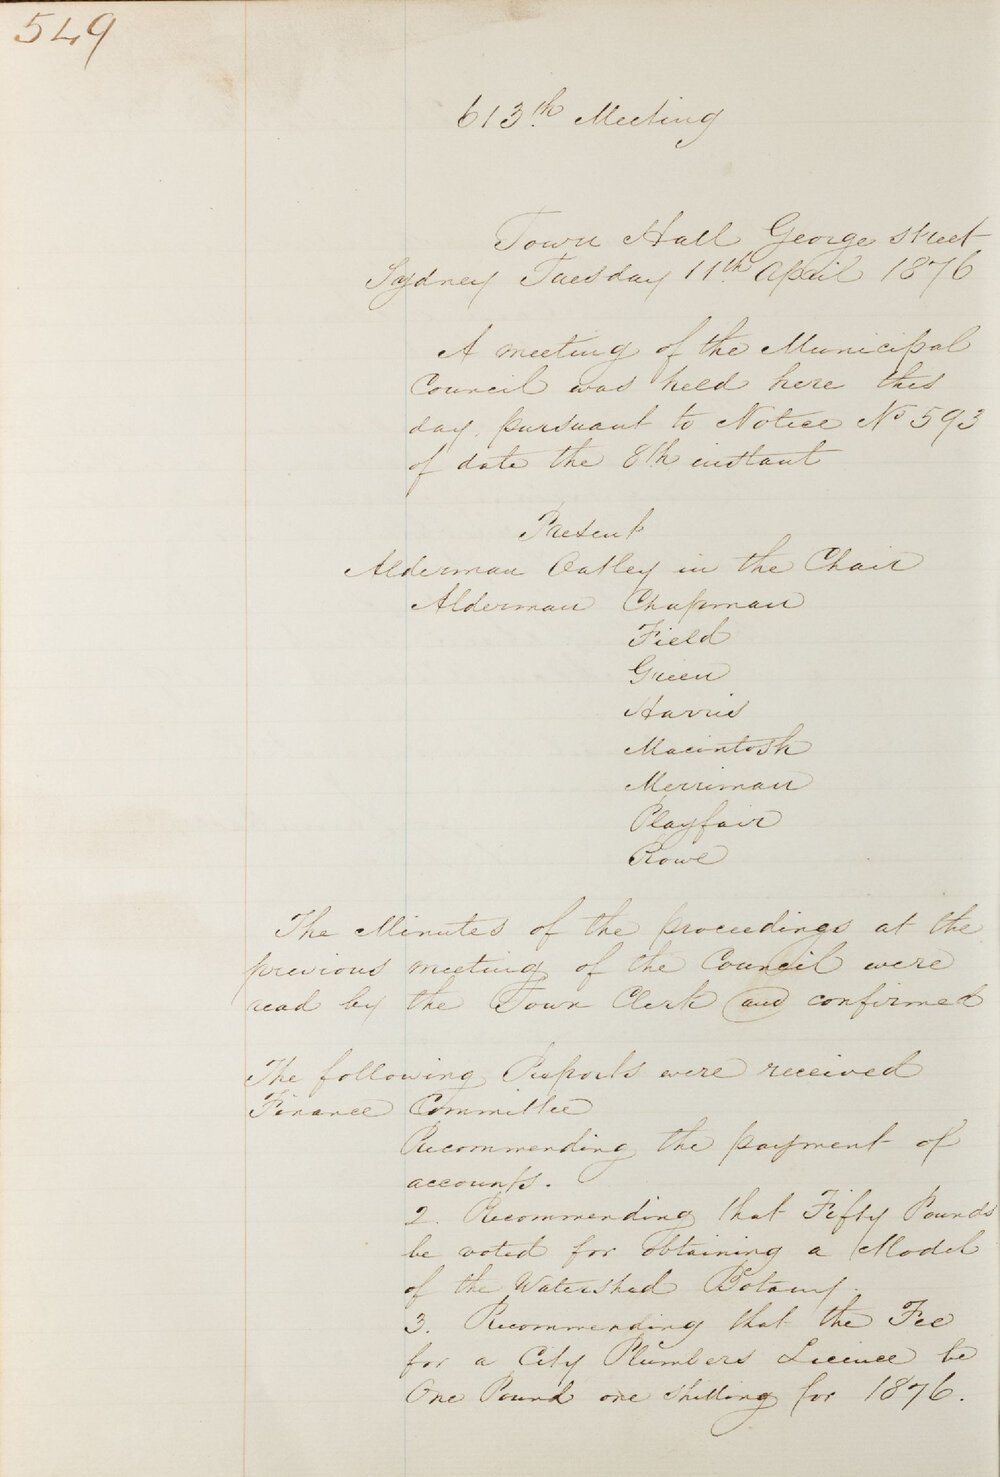 549
613th Meeting
Town Hall George street
Sydney Tuesday 11th April 1876
A meeting of the Municipal
Council was held here this
day pursuant to Notice No 593
of date the 8th instant
Present
Alderman Oatley in the Chair
Alderman Chapman
Field
Green
Harris
Macintosh
Merriman
Playfair
Rowe
The Minutes of the proceedings at the
previous meeting of the Council were
read by the Town Clerk and confirmed
The following Reports were received
Finance Committee
Recommending the payment of
accounts.
2. Recommending that Fifty Pounds
be voted for obtaining a Model
of the Watershed Botany.
3. Recommending that the Fee
for a City Plumbers Licence be
One Pound one shilling for 1876.